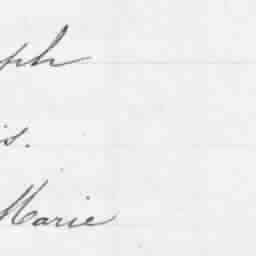 ph
is.
Marie